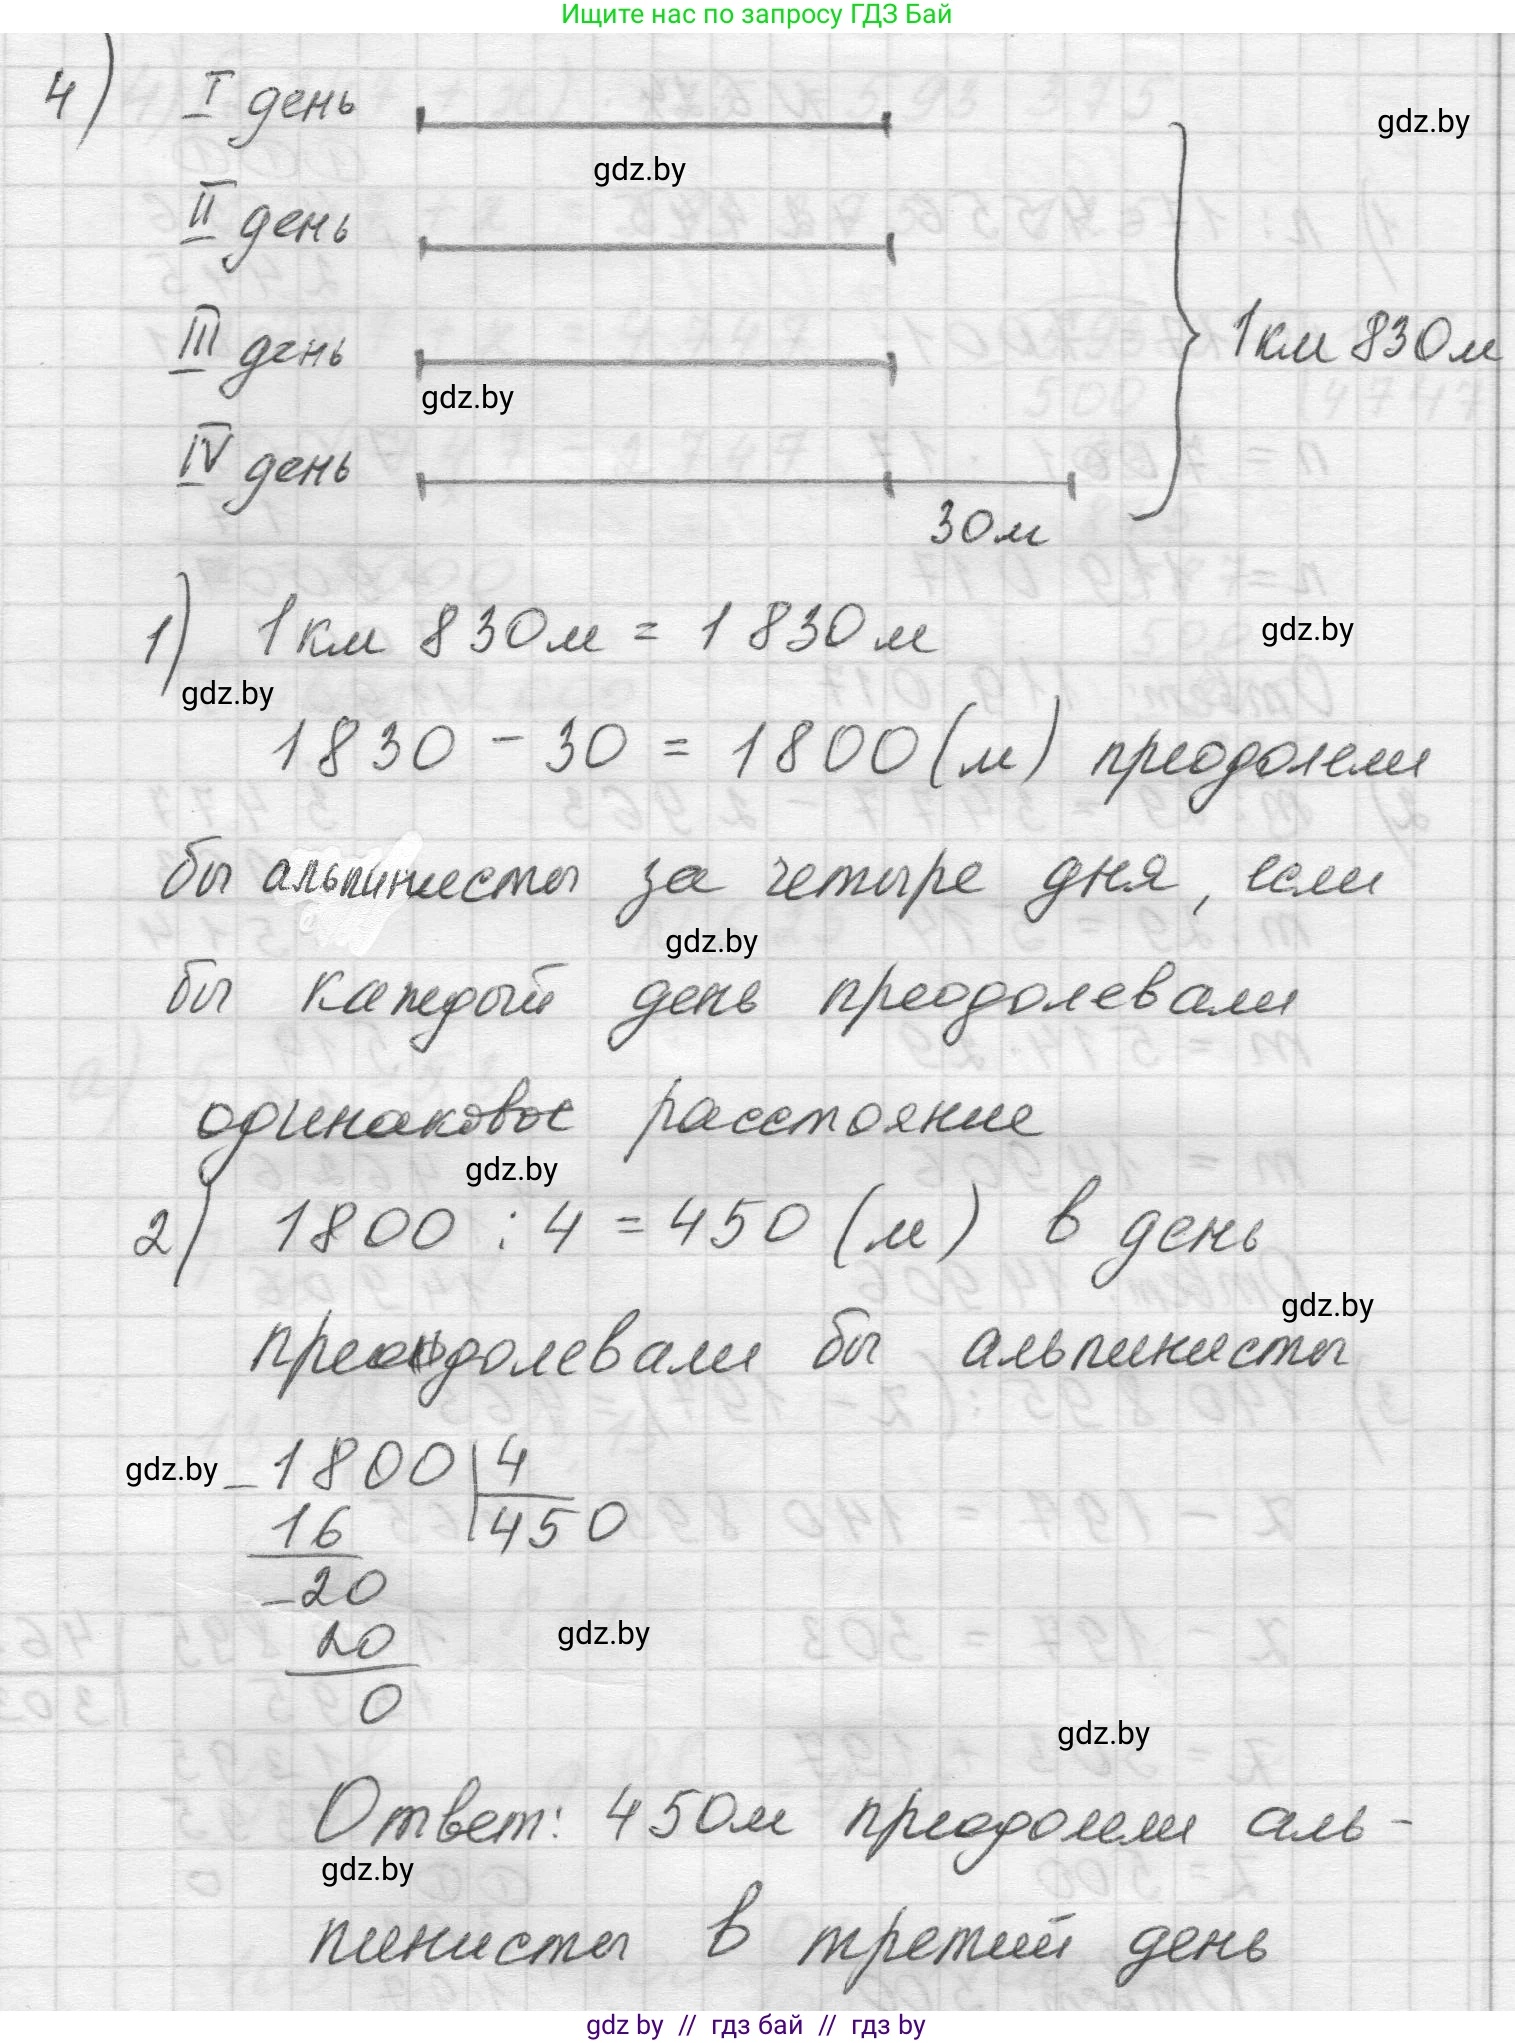 Ищите нас по запросу ГДЗ Бай
4) I день
gdz.by
gdz.by
II день
III день
1км 830м
gdz.by
IV день
30м
1) 1км 830м = 1 830м
gdz.by
gdz.by
1830 - 30 = 1800 (м) преодолели
бы альпинисты за четыре дня, если
gdz.by
бы каждый день преодолевали
одинаковое расстояние
gdz.by
2) 1800 : 4 = 450 (м) в день
gdz.by
преодолевали бы альпинисты
gdz.by
- 1800 | 4
16 450
- 20
20
gdz.by
0
gdz.by
Ответ: 450м преодолели аль-
gdz.by
пинисты в третий день
gdz.by // гдз бай // гдз by